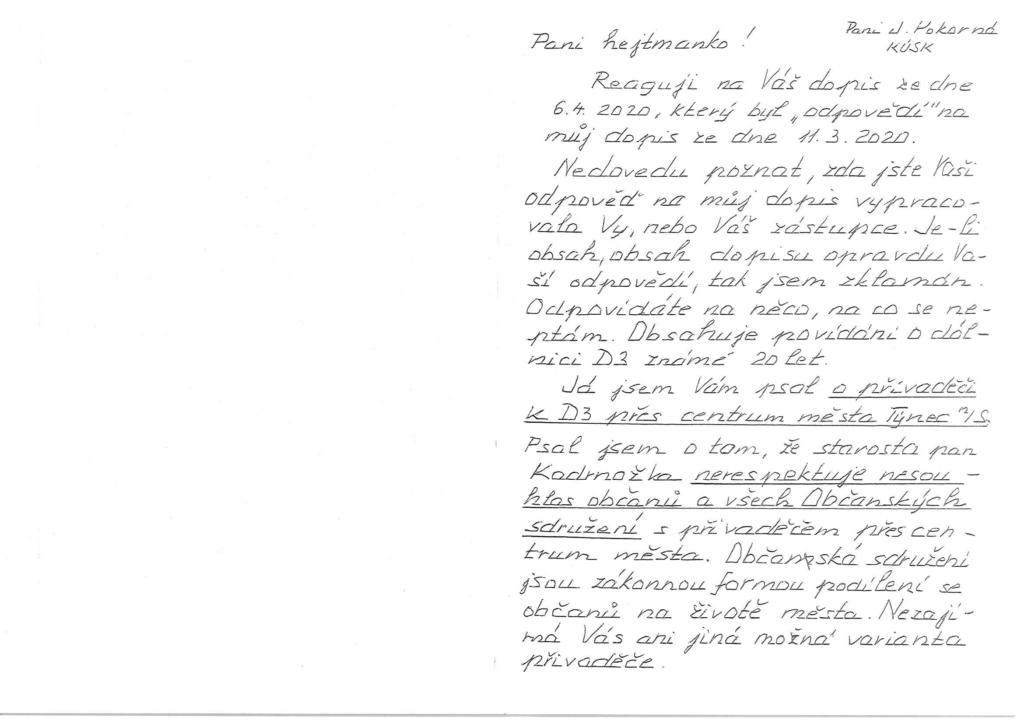 Paní J. Pokorná
KÚSK
Paní hejtmanko !
Reaguji na Váš dopis ze dne
6.4. 2020, který byl „odpovědí" na
můj dopis ze dne 11.3.2020.
Nedovedu poznat, zda jste Vaši
odpověď na můj dopis vypraco-
vala Vy, nebo Váš zástupce. Je-li
obsah, obsah dopisu opravdu Va-
ší odpovědí, tak jsem zklamán.
Odpovídáte na něco, na co se ne-
ptám. Obsahuje povídání o dál-
nici D3 známé 20 let.
Já jsem Vám psal o přivaděči
k D3 přes centrum města Týnec n/S.
Psal jsem o tom, že starosta pan
Kadrnožka nerespektuje nesou-
hlas občanů a všech Občanských
sdružení s přivaděčem přes cen-
trum města. Občanská sdružení
jsou zákonnou formou podílení se
občanů na životě města. Nezají-
má Vás ani jiná možná varianta
přivaděče.